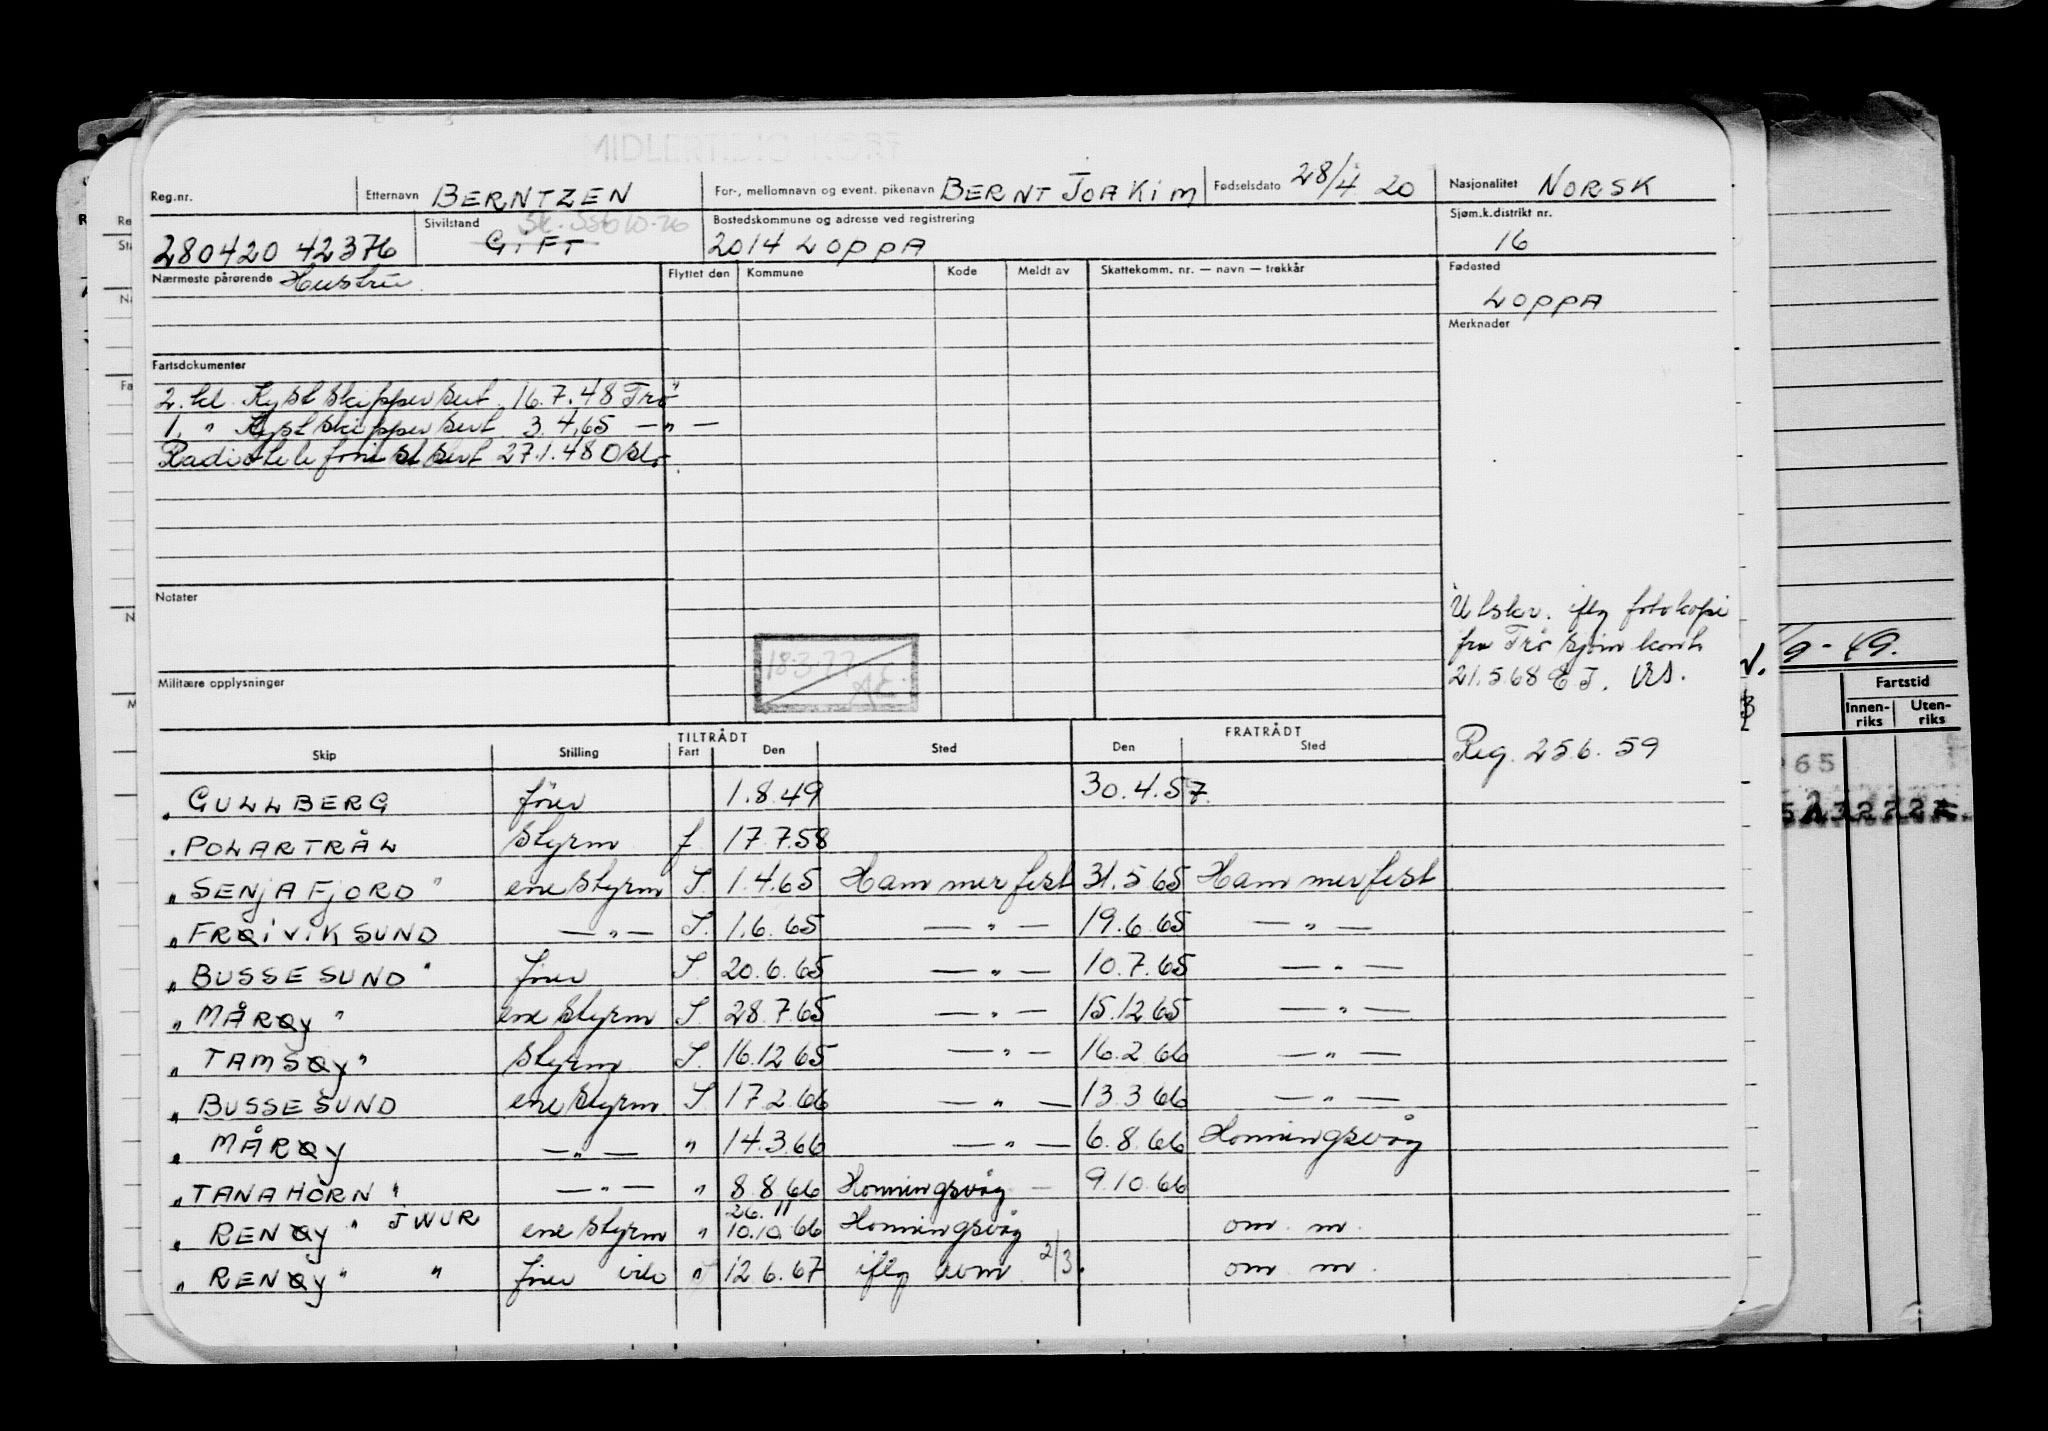 MIDLERTIDIG KORT
Reg.nr. Etternavn BERNTZEN For-, mellomnavn og event. pikenavn BERNT JOAKIM Fødselsdato 28/4 20 Nasjonalitet NORSK
280420 42376 Sivilstand GIFT Bostedskommune og adresse ved registrering 2014 LOPPA Sjøm.k.distrikt nr. 16
Nærmeste pårørende Hustru Flyttet den Kommune Kode Meldt av Skattekomm. nr. — navn — trekkår Fødested
LOPPA
Merknader
Fartsdokumenter
2. kl. Kystskippersert. 16.7.48 Trø
1. " Kystskippersert. 3.4.65 — " —
Radiotelefonistsert 27.1.48 Oslo
Notater
Utskr. iflg fotokopi
fra Trø sjøm kont.
21.5.68 E J.
18.3.77
Militære opplysninger
Reg. 256.59
TILTRÅDT FRATRÅDT
Skip Stilling Fart Den Sted Den Sted
" GULLBERG fører 1.8.49 30.4.57
" POLARTRÅL styrm f 17.7.58
" SENJAFJORD " ene styrm S. 1.4.65 Hammerfest 31.5.65 Hammerfest
" FRØIVIKSUND — " — S. 1.6.65 — " — 19.6.65 — " —
" BUSSESUND " fører S. 20.6.65 — " — 10.7.65 — " —
" MÅRØY " ene styrm S. 28.7.65 — " — 15.12.65 — " —
" TAMSØY " styrm S. 16.12.65 — " — 16.2.66 — " —
" BUSSESUND ene styrm S. 17.2.66 — " — 13.3.66 — " —
" MÅRØY — " — " 14.3.66 — " — 6.8.66 Honningsvåg
" TANAHORN " — " — " 8.8.66 Honningsvåg — 9.10.66
26.11
" RENØY " JWUR ene styrm " 10.10.66 Honningsvåg om. m.
" RENØY " " fører " 12.6.67 iflg 2/3. om m.
/9 - 49.
Fartstid
Innen-riks Uten-riks
65